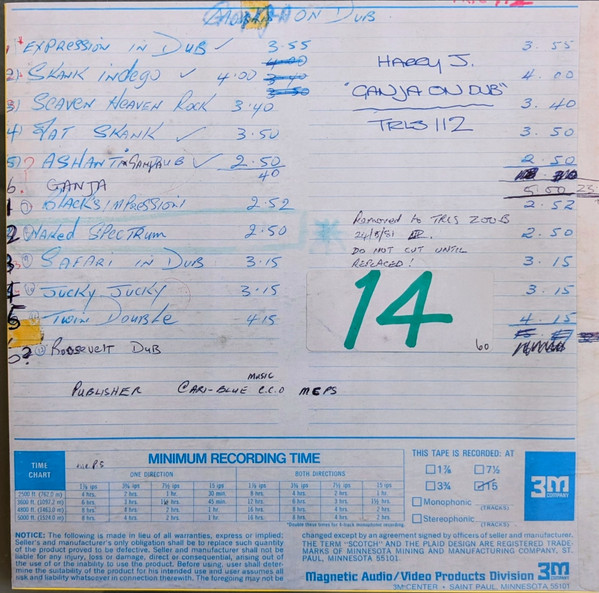 GANJA ON DUB
1) EXPRESSION IN DUB ✓ 3.55 3.55
2) SKANK INDEGO ✓ 4.00 4.00
HARRY J.
3) SEAVEN HEAVEN ROCK 3.40 3.40
"GANJA ON DUB"
4) FAT SKANK ✓ 3.50 3.50
TRLS 112
5) ASHANTI GANJA DUB ✓ 2.50 2.50
40
6. GANJA
1 BLACKS IMPRESSION 2.52 2.52
2 NAKED SPECTRUM 2.50 2.50
Removed to TRLS 200B
24/8/81
DO NOT CUT UNTIL
REPLACED!
3 SAFARI IN DUB 3.15 3.15
4 JUCKY JUCKY 3.15 3.15
5 TWIN DOUBLE 4.15 4.15
14
60
ROOSEVELT DUB
PUBLISHER CARI-BLUE MUSIC C.C.O MCPS
TIME CHART
MCPS
MINIMUM RECORDING TIME
ONE DIRECTION
BOTH DIRECTIONS
1⅞ ips 3¾ ips 7½ ips 15 ips 1⅞ ips 3¾ ips 7½ ips 15 ips
2500 ft. (762.0 m) 4 hrs. 2 hrs. 1 hr. 30 min. 8 hrs. 4 hrs. 2 hrs. 1 hr.
3600 ft. (1097.2 m)
4800 ft. (1463.0 m)
5000 ft. (1524.0 m)
*Double these times for 4-track monophonic recording.
THIS TAPE IS RECORDED: AT
1⅞ 7½
3¾ 15
Monophonic (TRACKS)
Stereophonic (TRACKS)
3M COMPANY
NOTICE: The following is made in lieu of all warranties, express or implied;
Seller's and manufacturer's only obligation shall be to replace such quantity
of the product proved to be defective. Seller and manufacturer shall not be
liable for any injury, loss or damage, direct or consequential, arising out of
the use of or the inability to use the product. Before using, user shall deter-
mine the suitability of the product for his intended use and user assumes all
risk and liability whatsoever in connection therewith. The foregoing may not be
changed except by an agreement signed by officers of seller and manufacturer.
THE TERM "SCOTCH" AND THE PLAID DESIGN ARE REGISTERED TRADE-
MARKS OF MINNESOTA MINING AND MANUFACTURING COMPANY, ST.
PAUL, MINNESOTA 55101.
Magnetic Audio/Video Products Division 3M COMPANY
3M CENTER • SAINT PAUL, MINNESOTA 55101